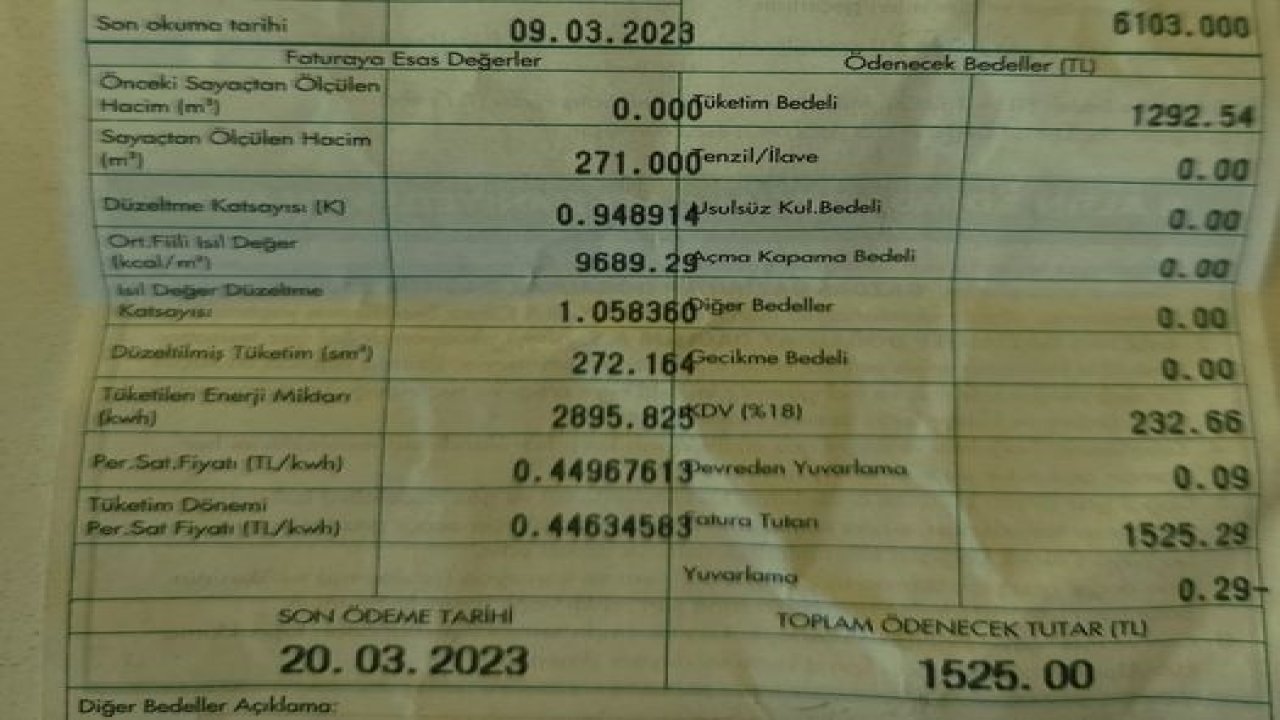 Son okuma tarihi 09.03.2023 6103.000
Faturaya Esas Değerler Ödenecek Bedeller (TL)
Önceki Sayaçtan Ölçülen
Hacim (m³) 0.000 Tüketim Bedeli 1292.54
Sayaçtan Ölçülen Hacim
(m³) 271.000 Tenzil/İlave 0.00
Düzeltme Katsayısı (K) 0.948914 Usulsüz Kul.Bedeli 0.00
Ort.Fiili Isıl Değer
(kcal/m³) 9689.29 Açma Kapama Bedeli 0.00
Isıl Değer Düzeltme
Katsayısı 1.058360 Diğer Bedeller 0.00
Düzeltilmiş Tüketim (sm³) 272.164 Gecikme Bedeli 0.00
Tüketilen Enerji Miktarı
(kwh) 2895.825 KDV (%18) 232.66
Per.Sat.Fiyatı (TL/kwh) 0.44967613 Devreden Yuvarlama 0.09
Tüketim Dönemi
Per.Sat Fiyatı (TL/kwh) 0.44634583 Fatura Tutarı 1525.29
Yuvarlama 0.29-
SON ÖDEME TARİHİ TOPLAM ÖDENECEK TUTAR (TL)
20.03.2023 1525.00
Diğer Bedeller Açıklama: